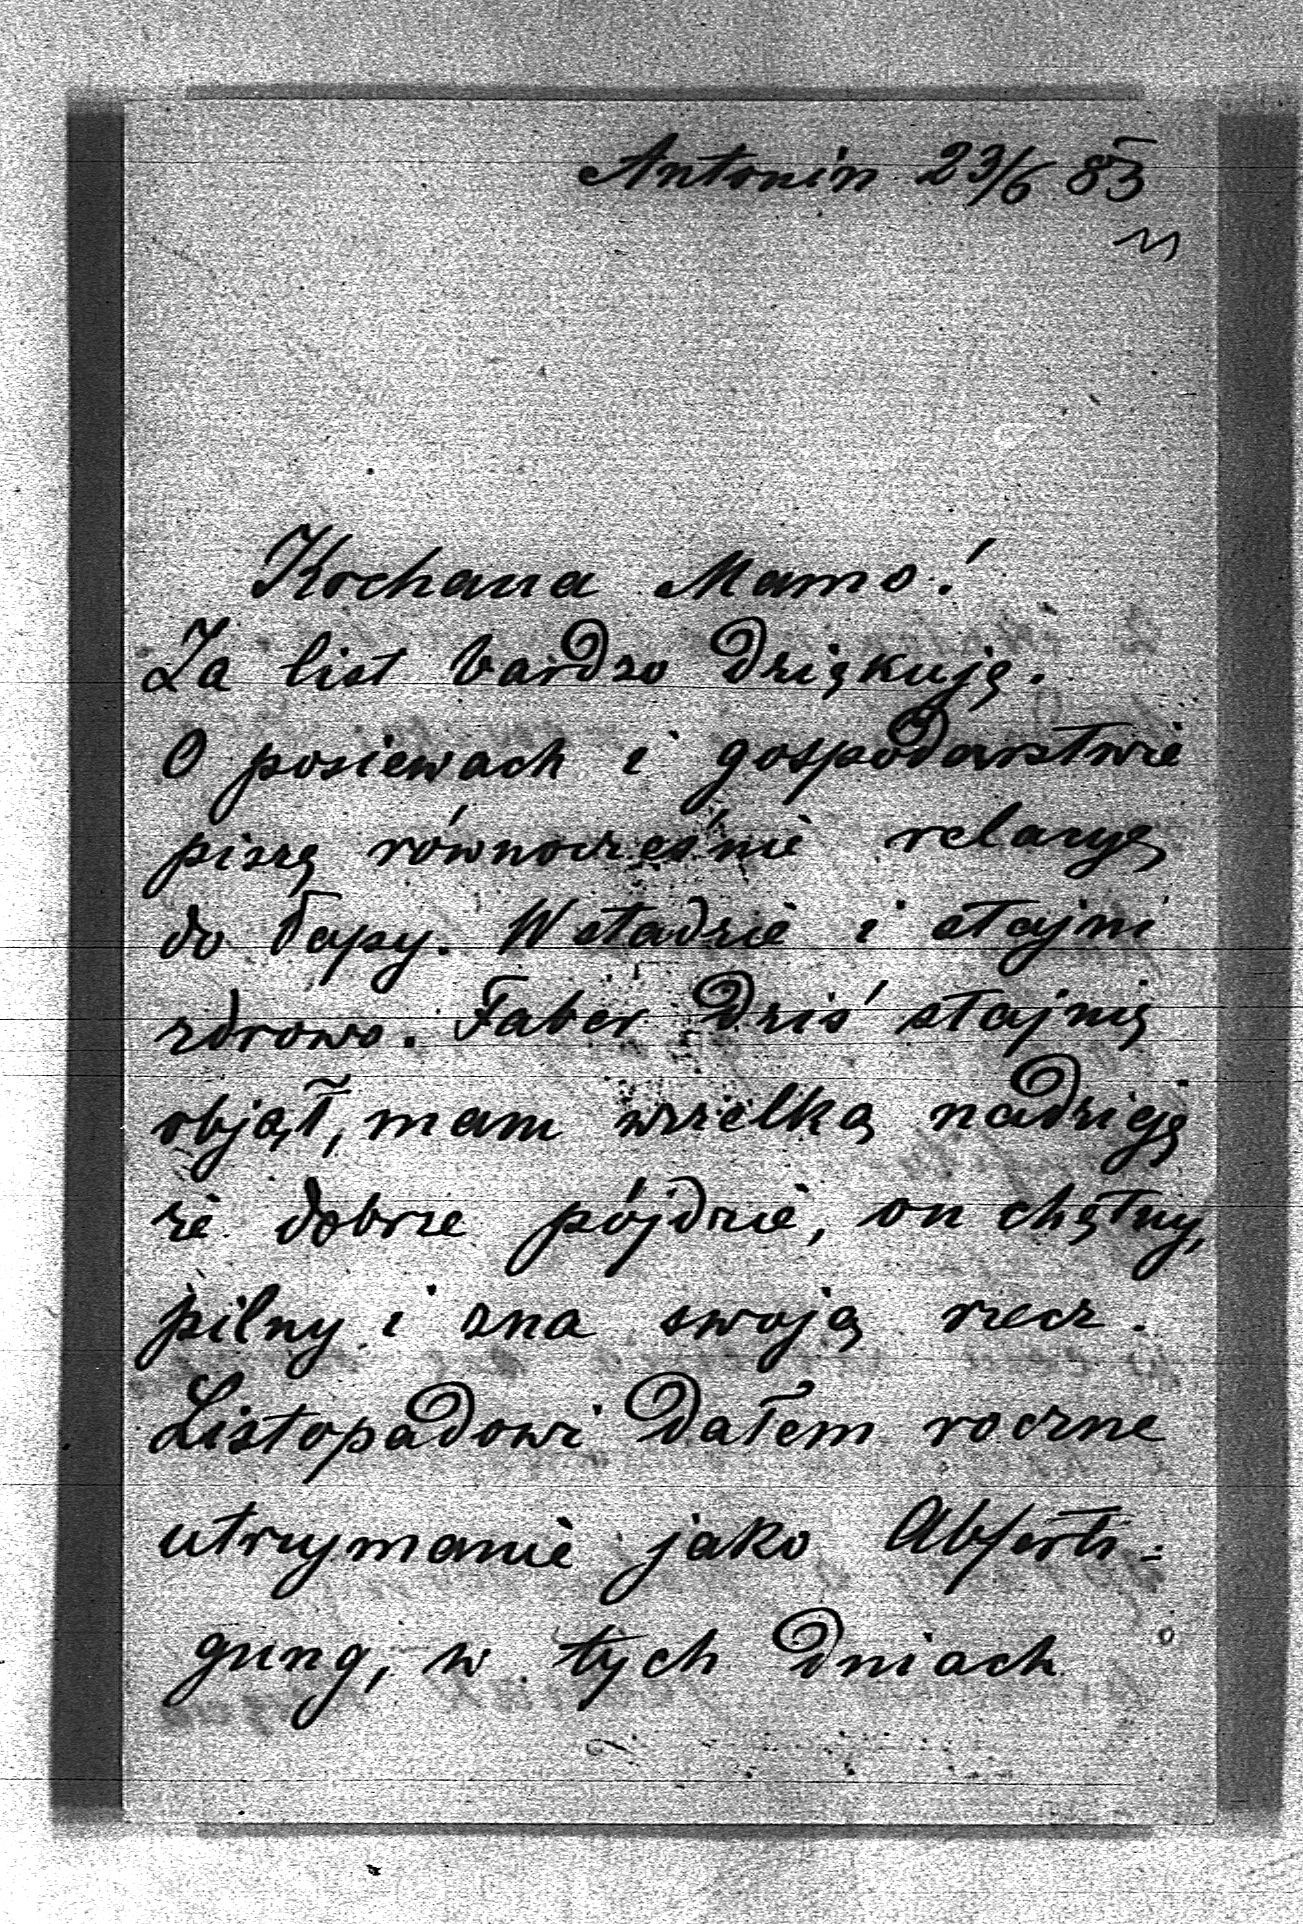 Antonin 23/6 83
Kochana Mamo!
Za list bardzo dziękuję.
O posiewach i gospodarstwie
piszę równocześnie relacyę
do Papy. W stadzie i stajni
zdrowo. Faber dziś stajnię
objął, mam wielką nadzieję
że dobrze pójdzie, on chętny,
pilny i zna swoją rzecz.
Listopadowi dałem roczne
utrzymanie jako Abferti-
gung, w tych dniach